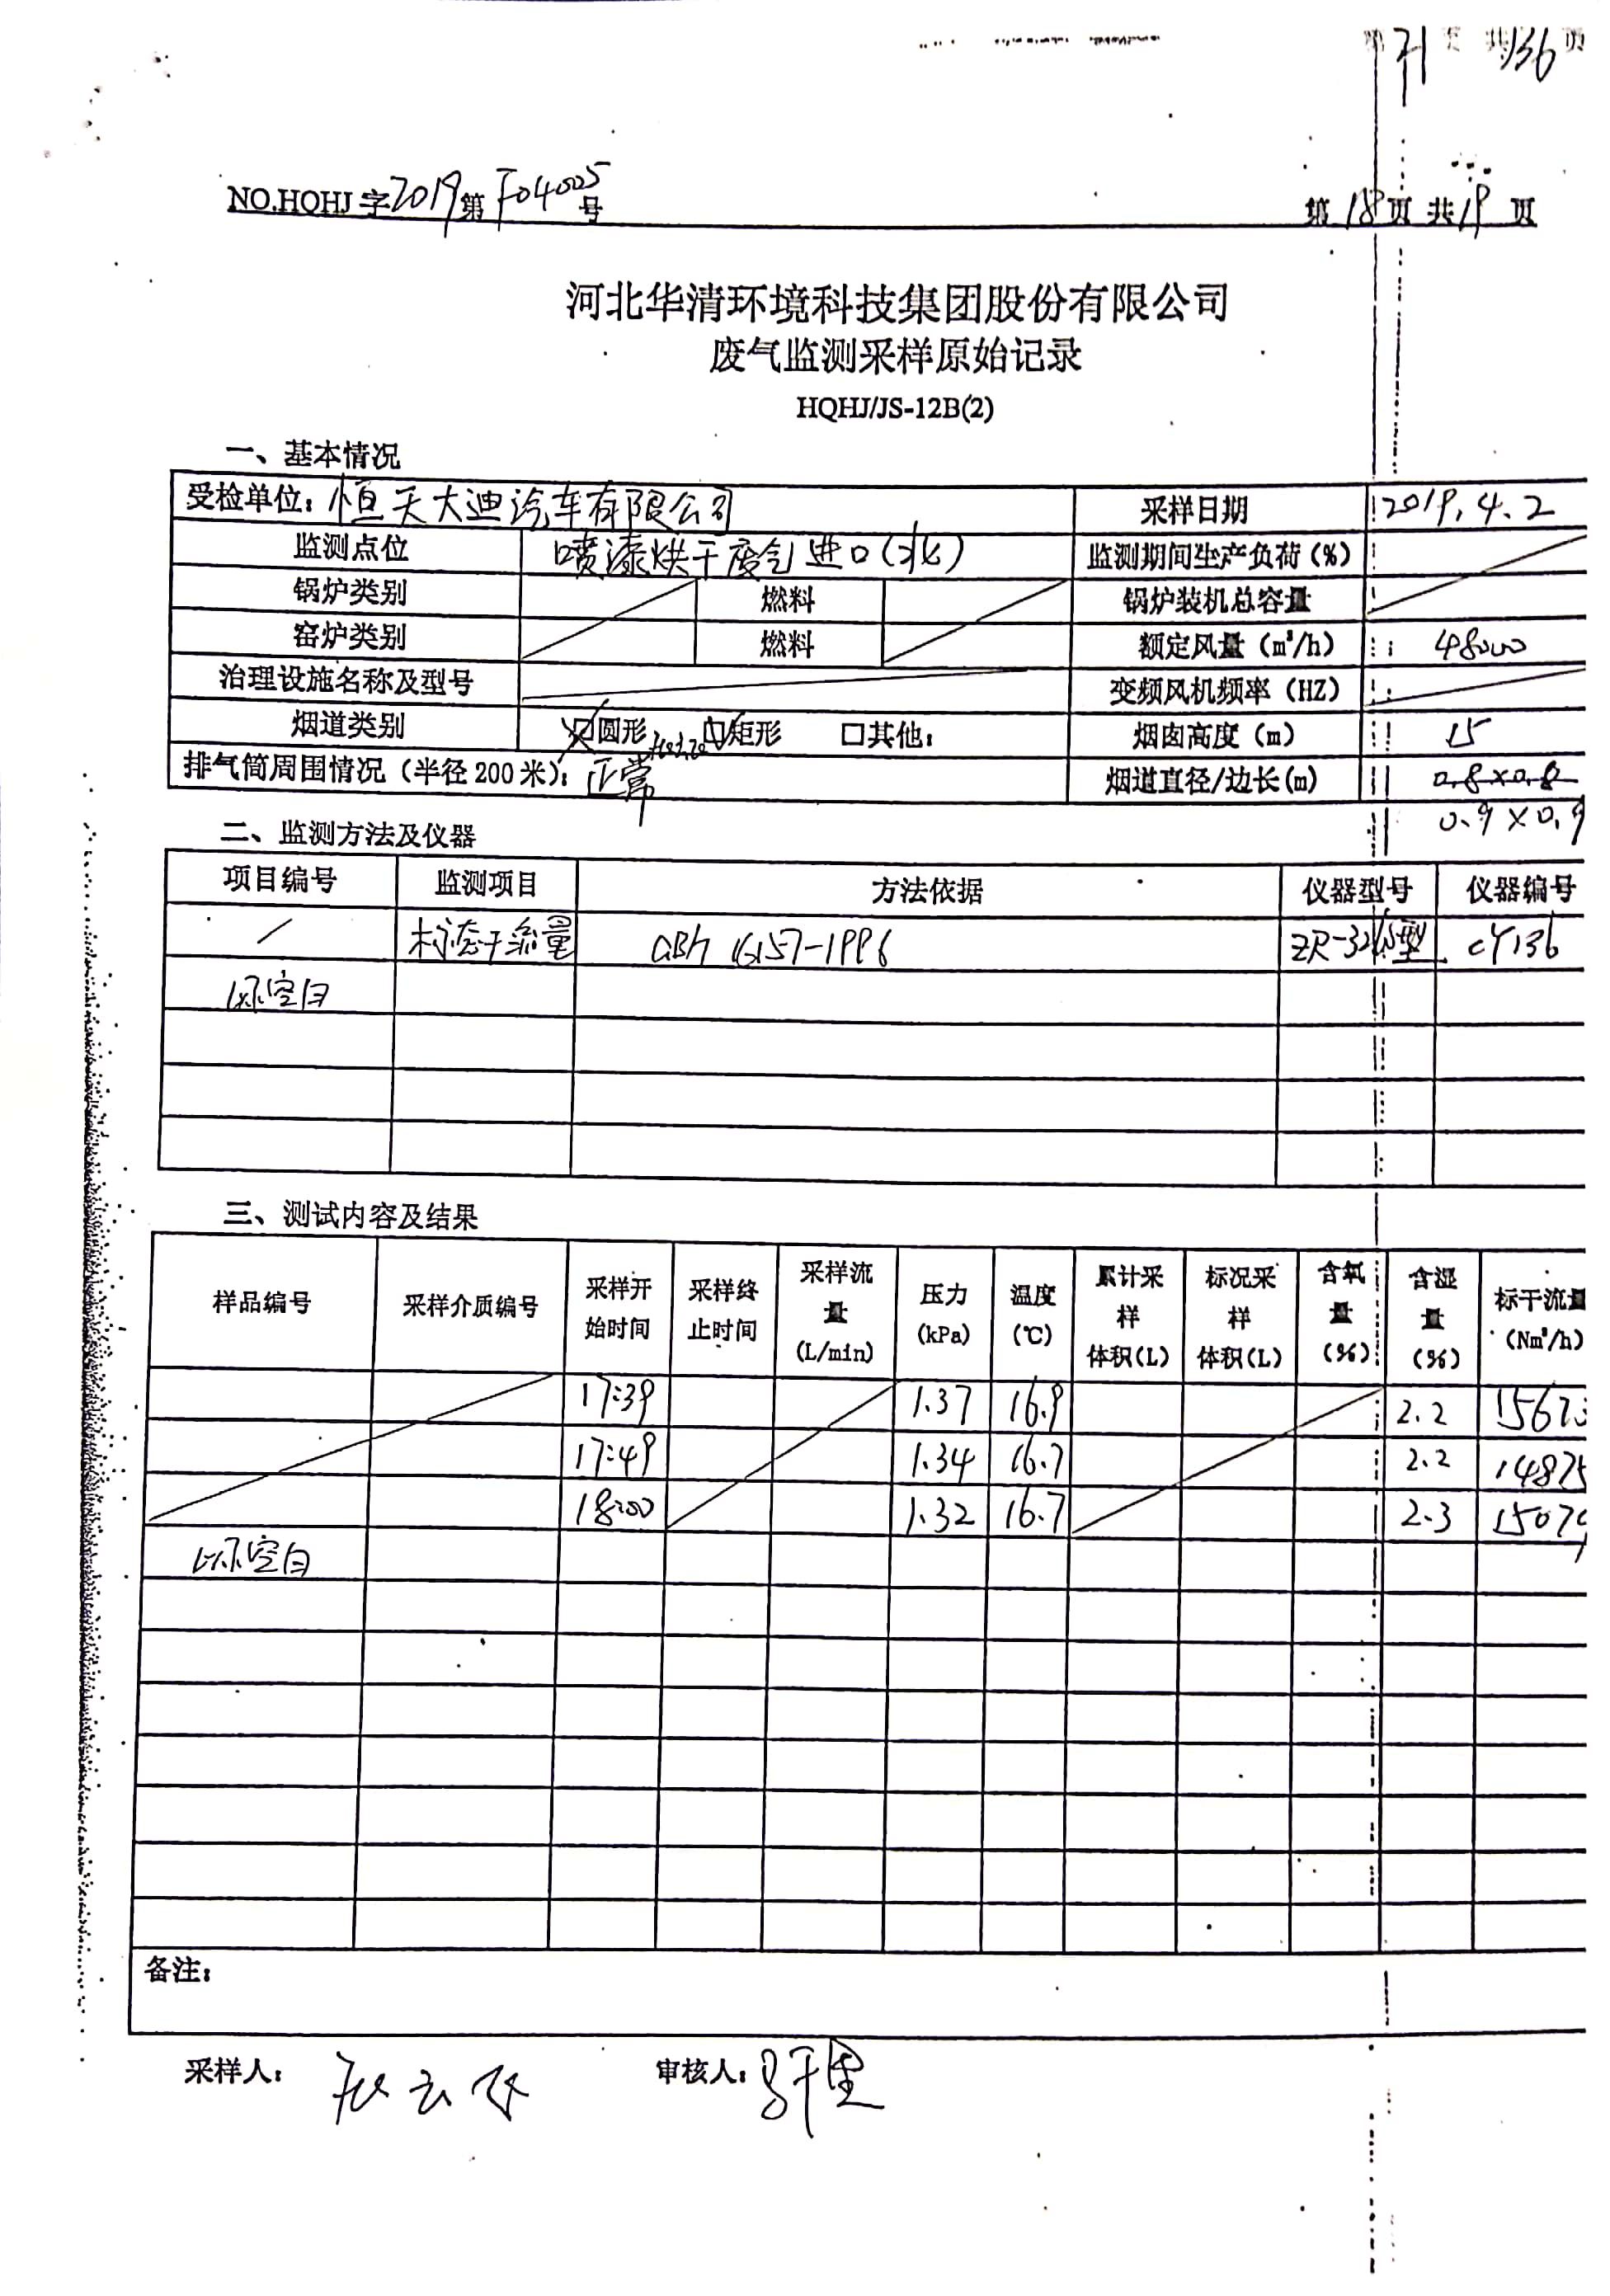 第 71 页 共 136 页
NO.HQHJ 字 2019 第 F04005 号
第 18 页 共 19 页
河北华清环境科技集团股份有限公司
废气监测采样原始记录
HQHJ/JS-12B(2)
一、基本情况
受检单位：恒天大迪汽车有限公司 采样日期 2019.4.2
监测点位 喷漆烘干废气进口(北) 监测期间生产负荷(%)
锅炉类别 燃料 锅炉装机总容量
窑炉类别 燃料 额定风量（m³/h） 48000
治理设施名称及型号 变频风机频率（HZ）
烟道类别 ☑圆形 ☑矩形 □其他： 烟囱高度（m） 15
排气筒周围情况（半径200米）：正常 烟道直径/边长(m) 0.8×0.8
0.9×0.9
二、监测方法及仪器
项目编号 监测项目 方法依据 仪器型号 仪器编号
/ 标态干流量 GB/T 16157-1996 CY136
以下空白
三、测试内容及结果
样品编号 采样介质编号 采样开始时间 采样终止时间 采样流量(L/min) 压力(kPa) 温度(℃) 累计采样体积(L) 标况采样体积(L) 含氧量(%) 含湿量(%) 标干流量(Nm³/h)
17:39 1.37 16.9 2.2 15673
17:49 1.34 16.7 2.2 14875
18:00 1.32 16.7 2.3 15079
以下空白
备注：
采样人：
审核人：